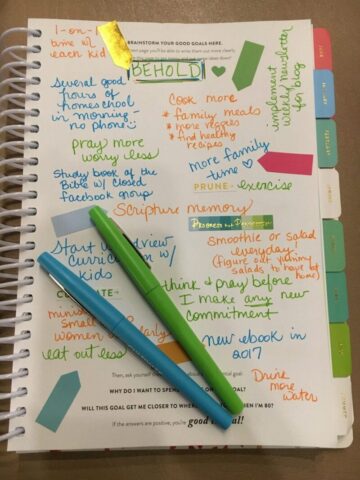 1-on-1
time w/
each kid
BRAINSTORM YOUR GOOD GOALS HERE.
page you'll be able to write them out more clearly
BEHOLD
implement
weekly newsletter
for blog
Several good
hours of
homeschool
in morning-
no phone
Cook more
* family meals
* more recipes
* find healthy
recipes
pray more
worry less
more family
time ♡
Study book of the
Bible w/ closed
facebook group
PRUNE→ exercise
Scripture memory
PROGRESS
Start
view
curriculum w/
kids
Smoothie or salad
everyday!
(figure out yummy
salads to have at
home)
think & pray before
I make any new
commitment
small
women
eat out less
new ebook in
2017
Drink
more
water
Then, ask
goal
WHY DO I WANT TO
GOAL?
WILL THIS GOAL GET ME CLOSER TO WHERE
WHEN I'M 80?
If the answers are positive, you've
good